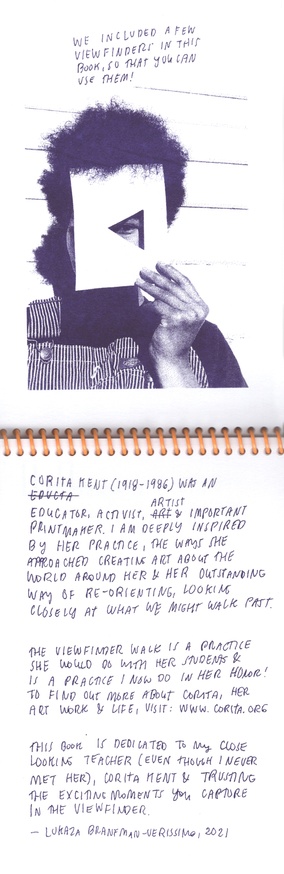 WE INCLUDED A FEW
VIEWFINDERS IN THIS
BOOK, SO THAT YOU CAN
USE THEM!
CORITA KENT (1918-1986) WAS AN
EDUCTA
ARTIST
EDUCATOR, ACTIVIST, ART & IMPORTANT
PRINTMAKER. I AM DEEPLY INSPIRED
BY HER PRACTICE, THE WAYS SHE
APPROACHED CREATING ART ABOUT THE
WORLD AROUND HER & HER OUTSTANDING
WAY OF RE-ORIENTING, LOOKING
CLOSELY AT WHAT WE MIGHT WALK PAST.
THE VIEWFINDER WALK IS A PRACTICE
SHE WOULD DO WITH HER STUDENTS &
IS A PRACTICE I NOW DO IN HER HONOR!
TO FIND OUT MORE ABOUT CORITA, HER
ART WORK & LIFE, VISIT: WWW.CORITA.ORG
THIS BOOK IS DEDICATED TO MY CLOSE
LOOKING TEACHER (EVEN THOUGH I NEVER
MET HER), CORITA KENT & TRUSTING
THE EXCITING MOMENTS YOU CAPTURE
IN THE VIEWFINDER.
— LUKAZA BRANFMAN-VERISSIMO, 2021